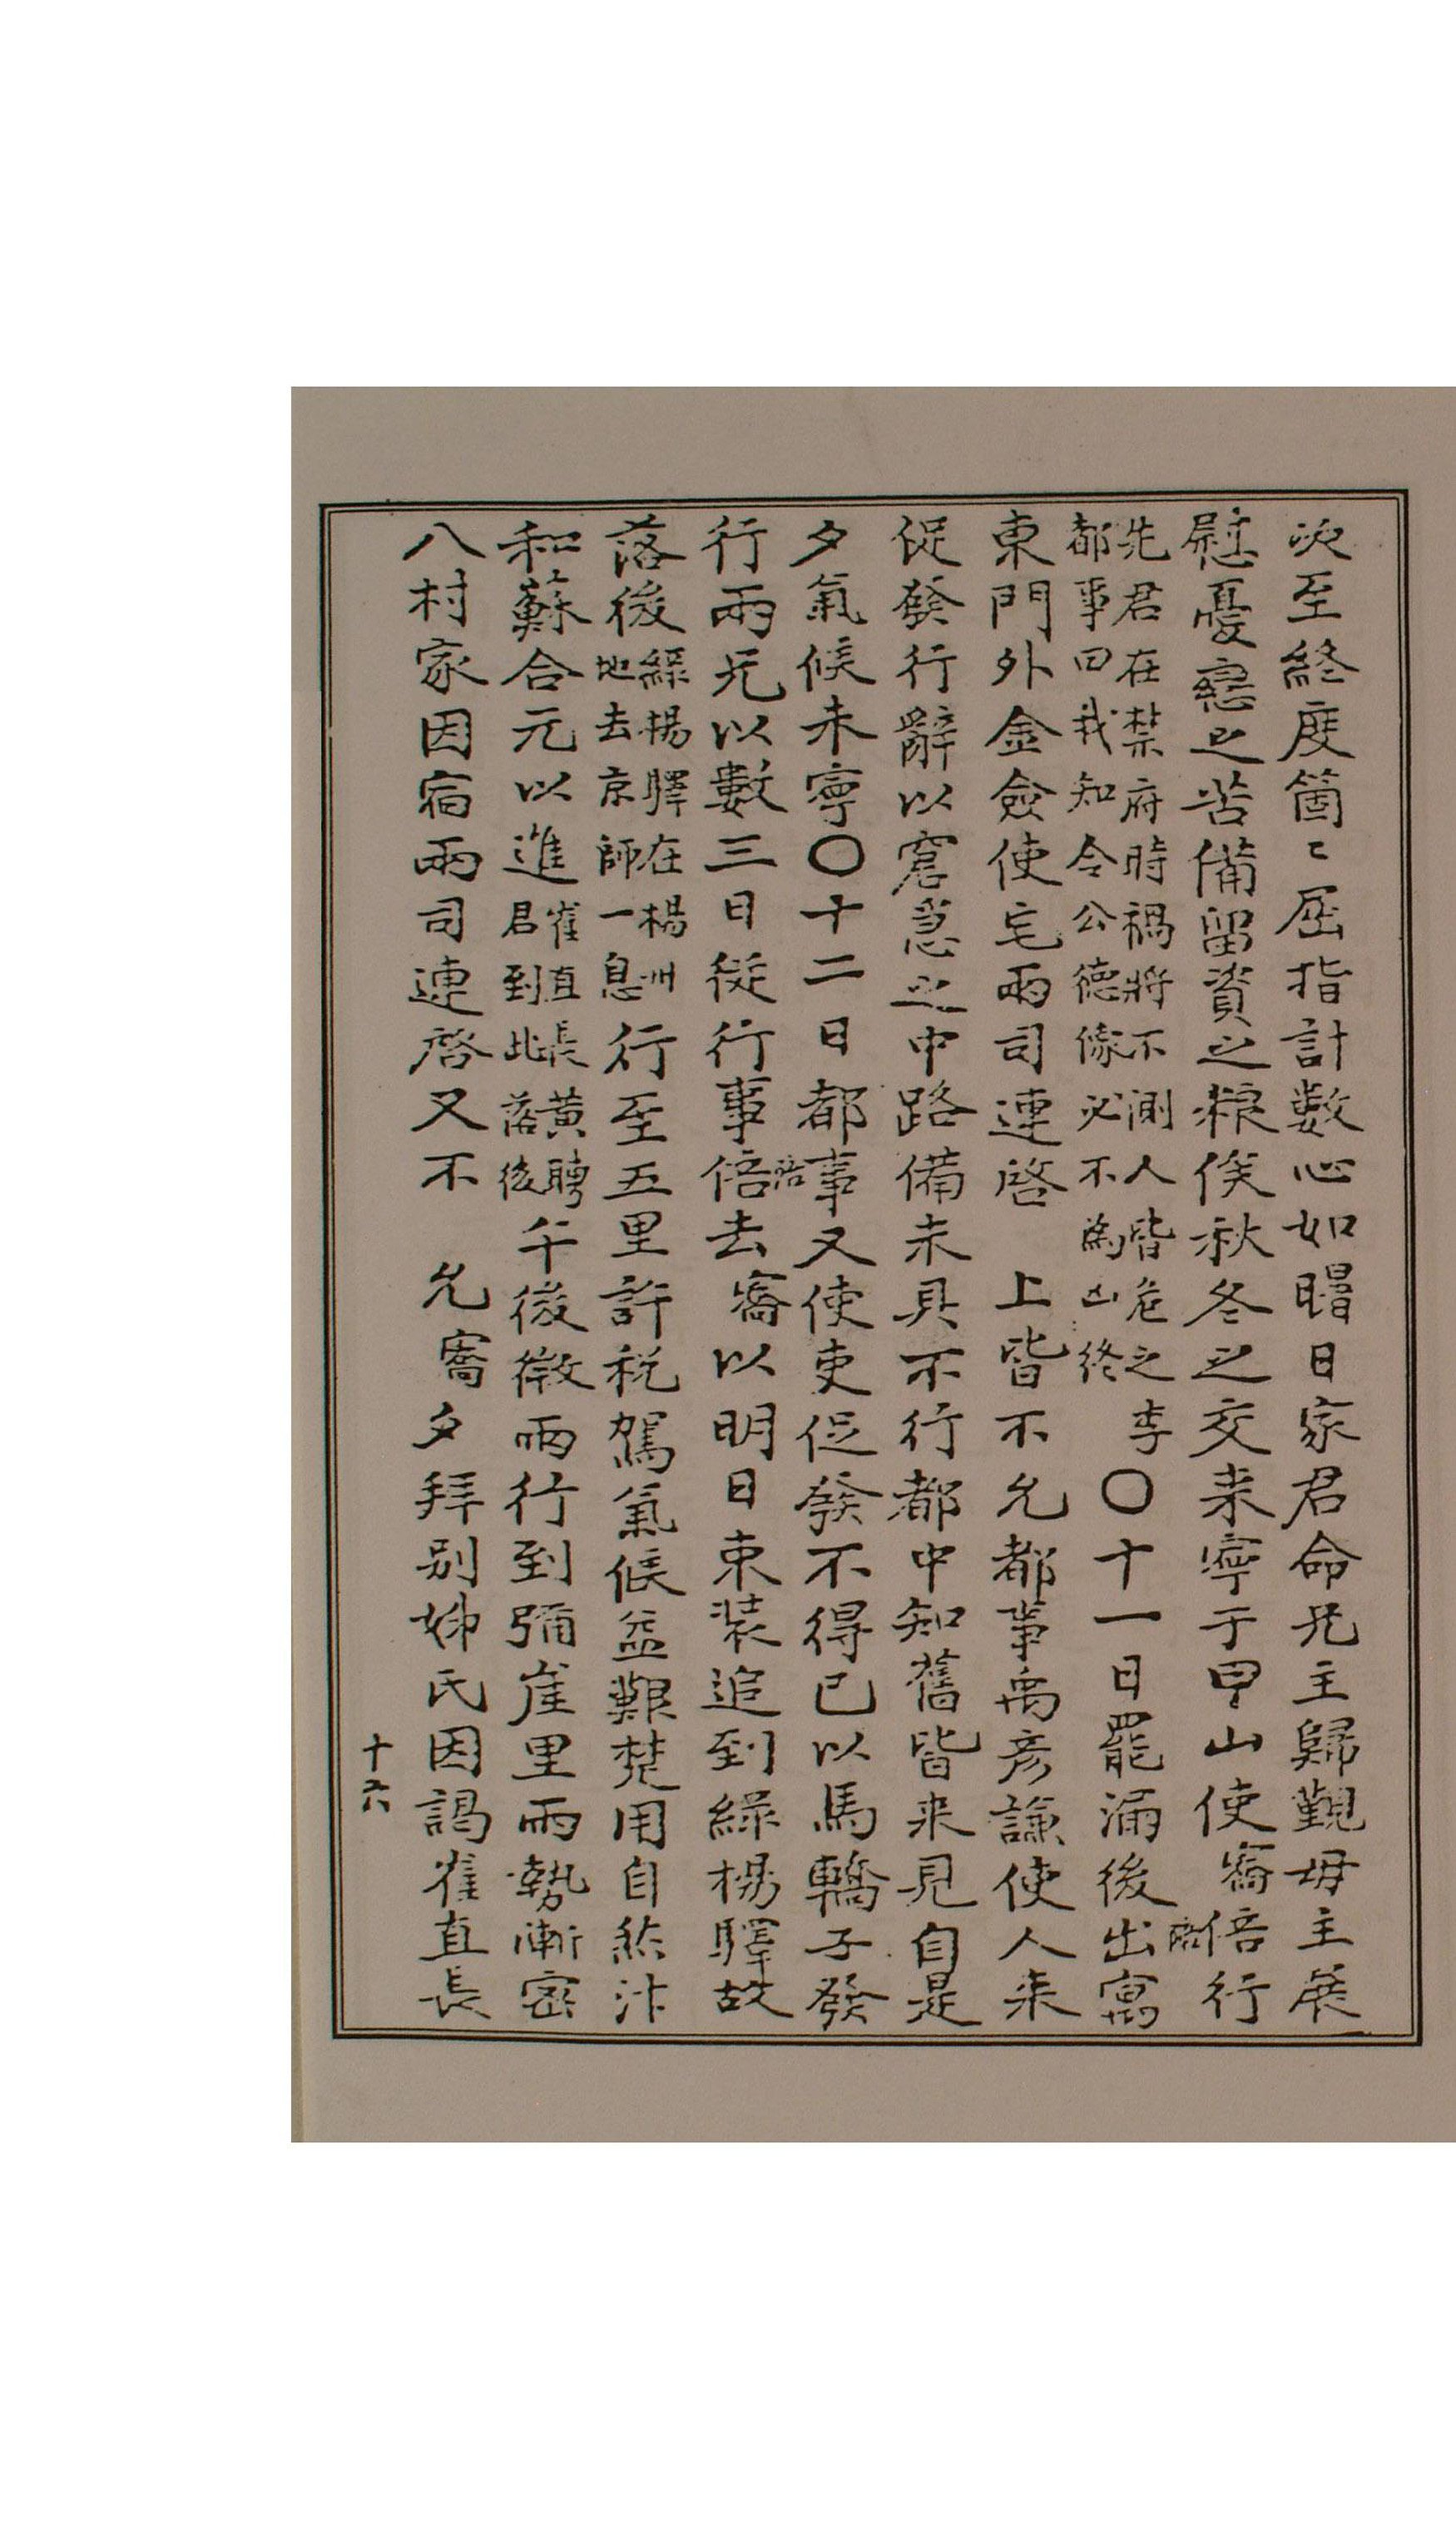 次至終度箇〻屈指計數心如㫮日家君命兄主歸覲母主展
慰憂戀之苦備留資之粮俟秋冬之交來寧于甲山使䆷倍行
先君在禁府時禍將不測人皆危之李
都事曰我知令公德像必不為凶終
○十一日罷漏後出寓
東門外金僉使宅兩司連啓 上皆不允都事禹彦謙使人来
促發行辭以窘急之中路備未具不行都中知舊皆来見自是
夕氣候未寧○十二日都事又使吏促發不得已以馬轎子發
行兩兄以數三日徒行事倍去䆷以明日束装追到綠楊驛故
落後
綠楊驛在楊州
地去京師一息
行至五里許税駕氣候益艱楚用自然汁
和蘇合元以進
崔直長黃聘
君到此落後
午後微雨行到彌崖里雨勢漸密
八村家因宿兩司連啓又不 允䆷夕拜别姊氏因謁崔直長
十六